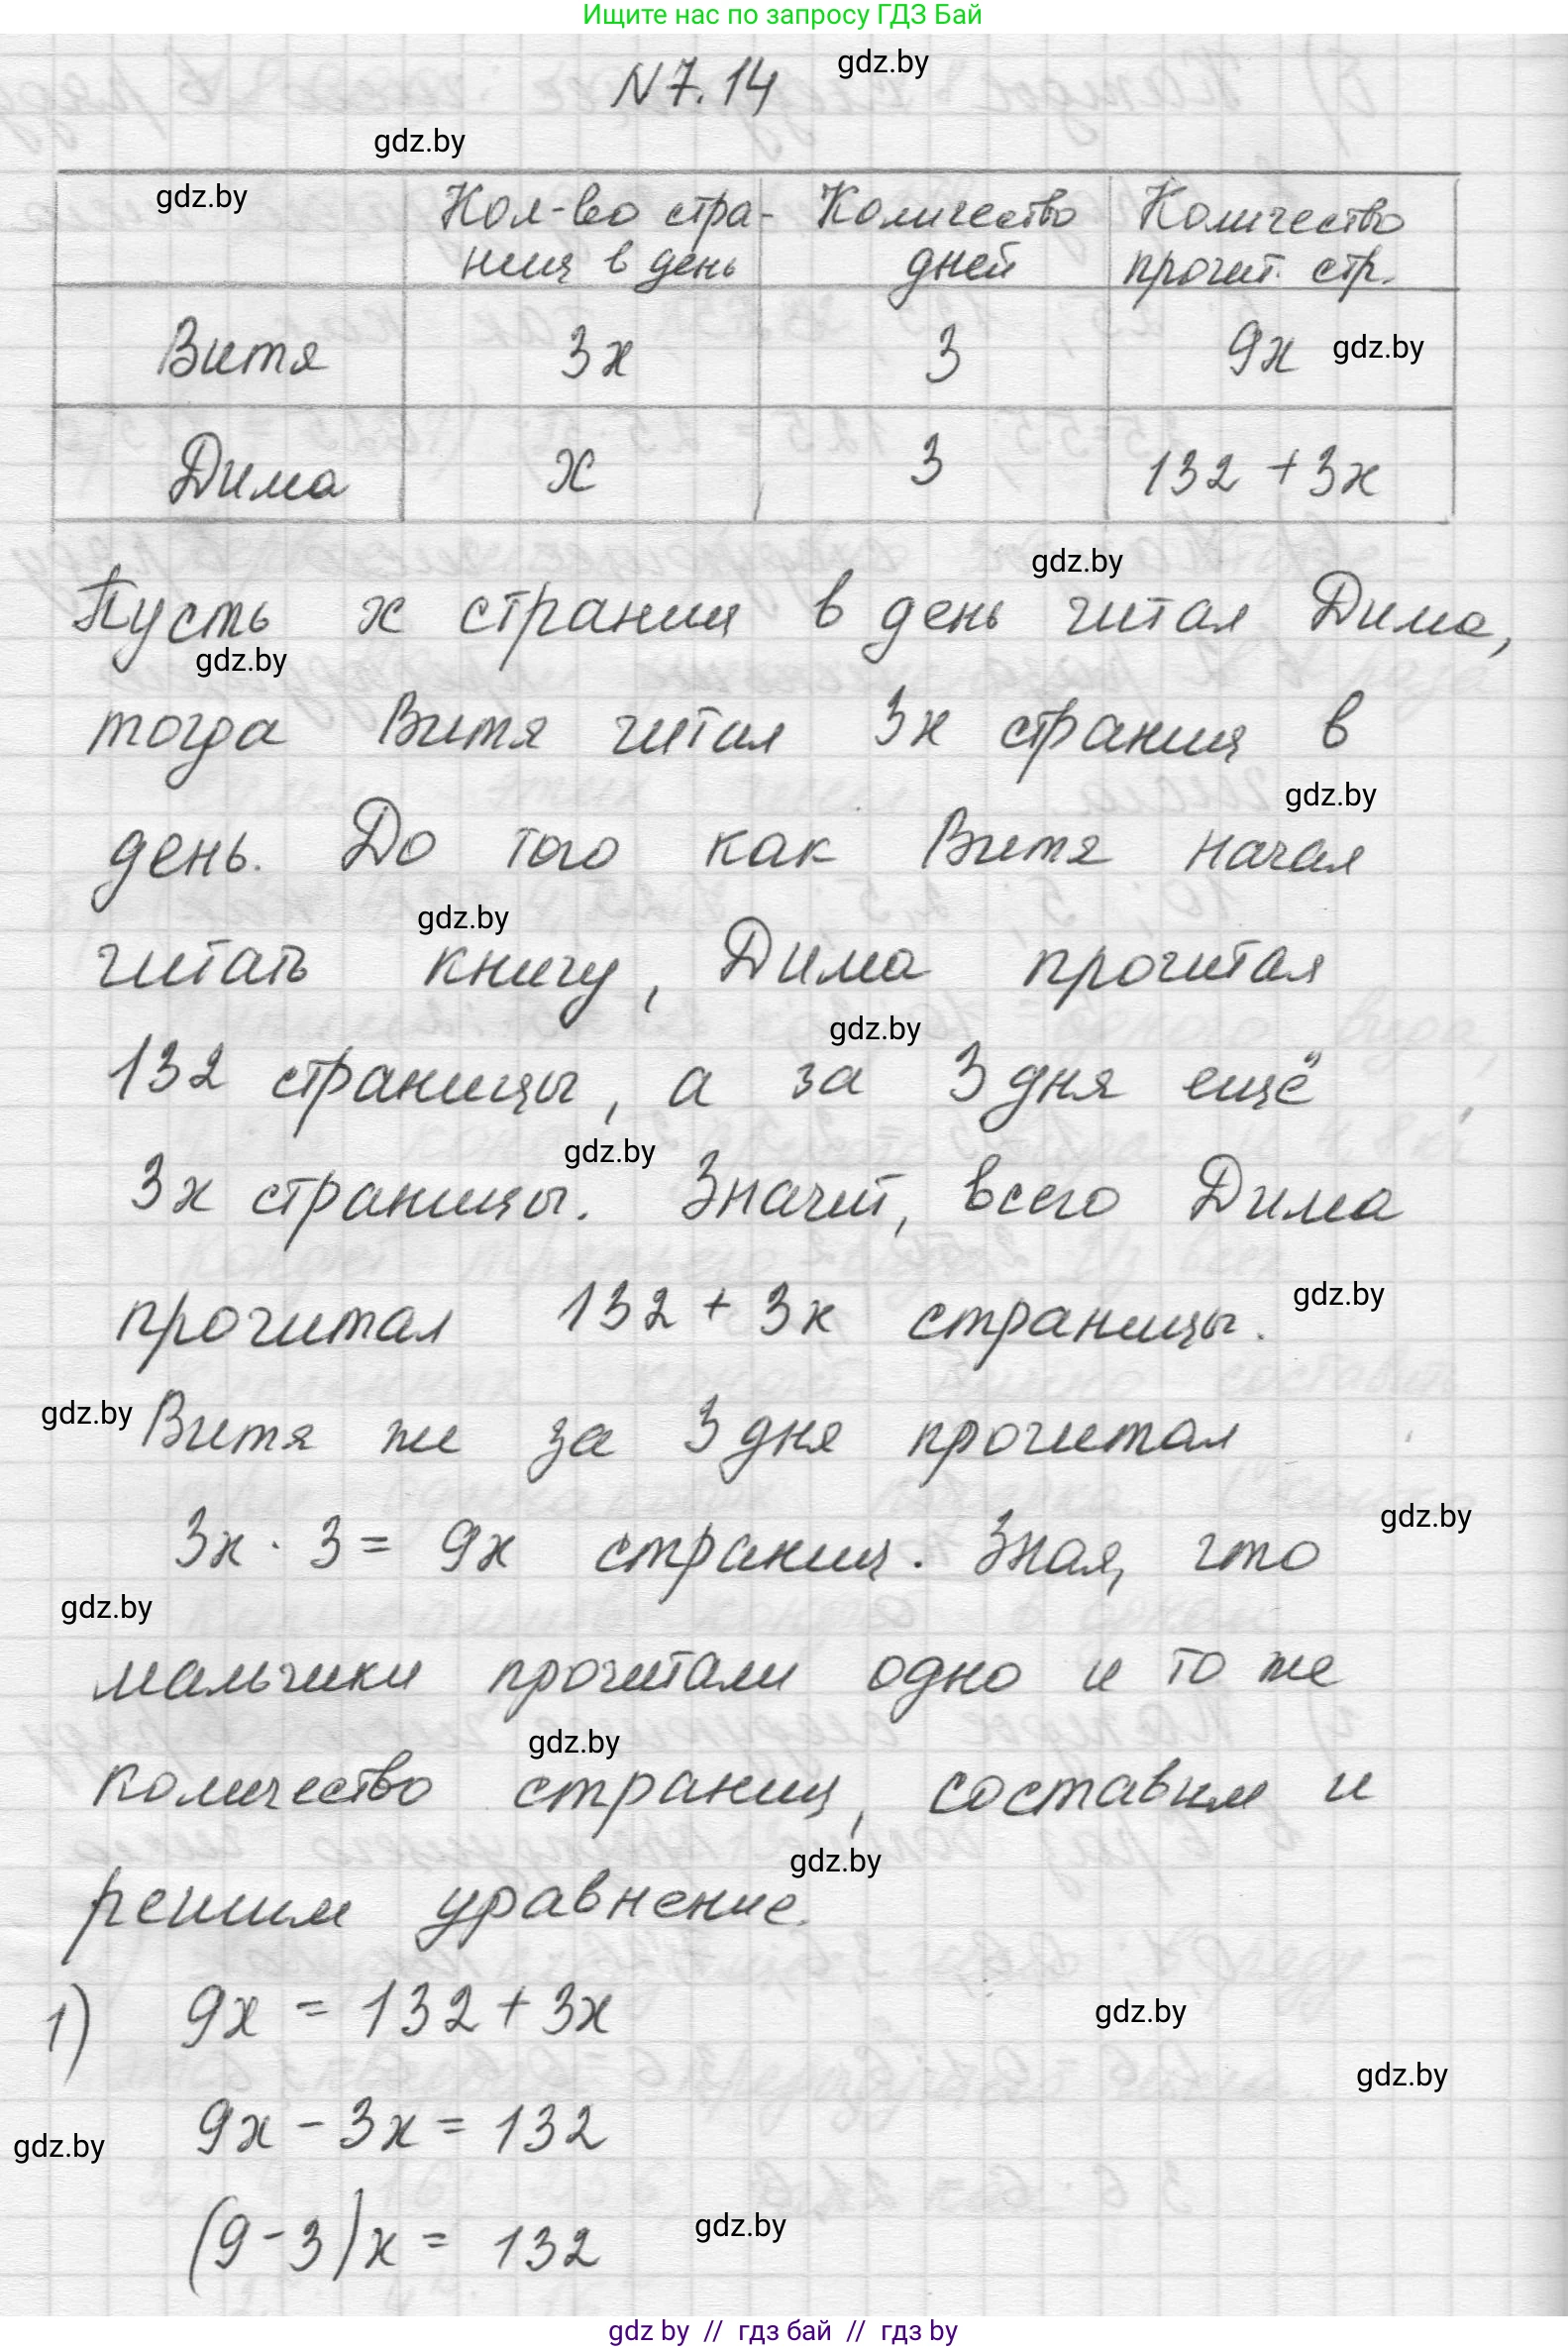 Ищите нас по запросу ГДЗ Бай
N 7.14
gdz.by
gdz.by
gdz.by
Кол-во стра-
ниц в день
Количество
дней
Количество
прочит. стр.
Витя 3x 3 9x gdz.by
Дима x 3 132 + 3x
gdz.by
Пусть x страниц в день читал Дима,
gdz.by
тогда Витя читал 3x страниц в
gdz.by
день. До того как Витя начал
gdz.by
читать книгу, Дима прочитал
gdz.by
132 страницы, а за 3 дня ещё
gdz.by
3x страницы. Значит, всего Дима
gdz.by
прочитал 132 + 3x страницы.
gdz.by
Витя же за 3 дня прочитал
gdz.by
3x · 3 = 9x страниц. Зная, что
gdz.by
мальчики прочитали одно и то же
gdz.by
количество страниц, составим и
gdz.by
решим уравнение.
1) 9x = 132 + 3x
gdz.by
gdz.by
9x - 3x = 132
gdz.by
(9 - 3)x = 132
gdz.by
gdz.by // гдз бай // gdz by